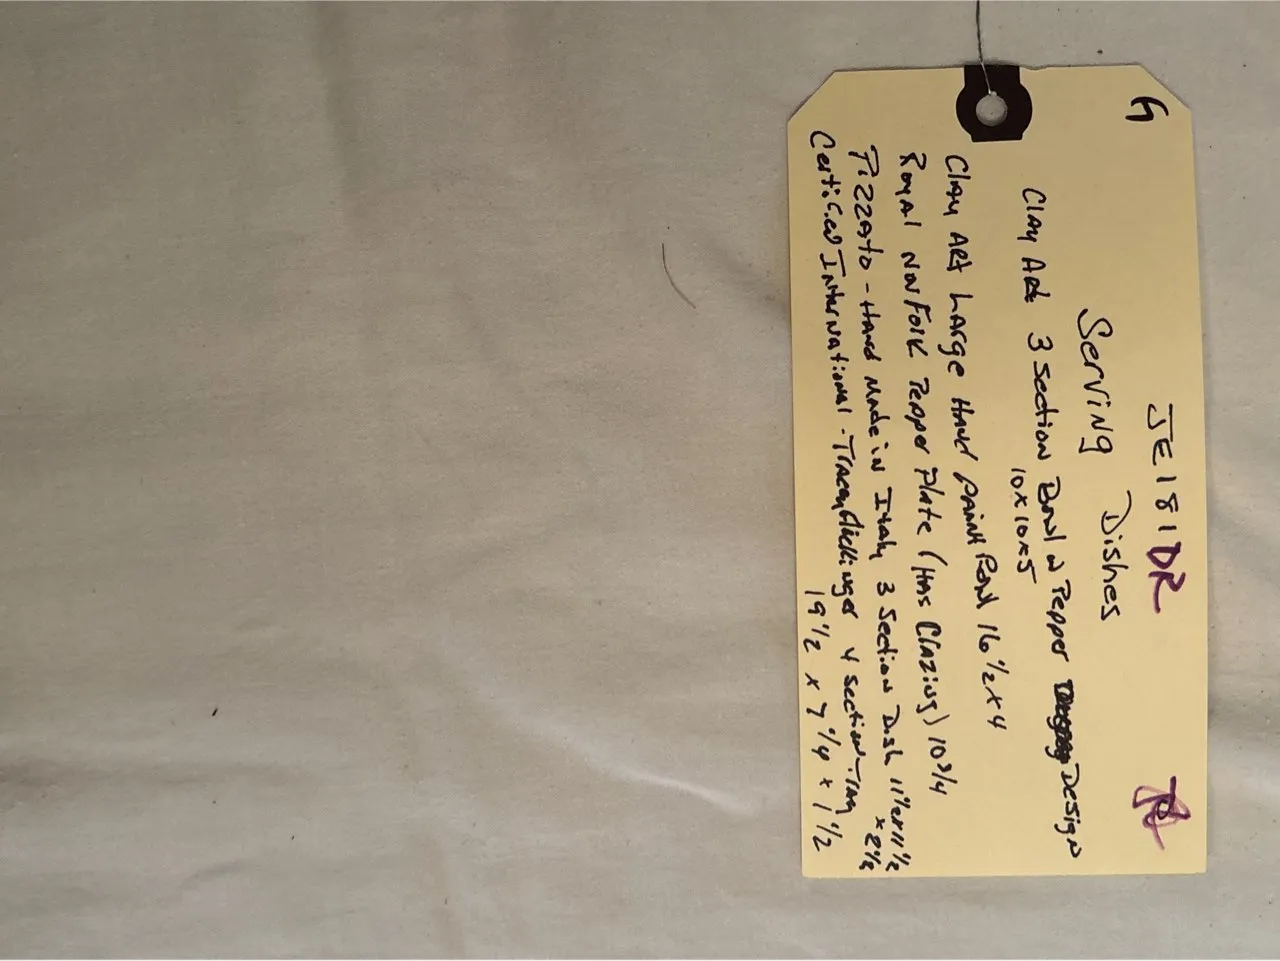 G
JE181DR
Serving Dishes
Clay Art 3 Section Bowl w Pepper Design
10x10x5
Clay Art Large Hand Paint Bowl 16 1/2 x 4
Royal Norfolk Pepper Plate (Has Glazing) 10 3/4
Pizzato - Hand Made in Italy 3 Section Dish 11 1/2 x 11 1/2
Certified International - Tracy Flickinger 4 Section Tray
19 1/2 x 7 1/4 x 1 1/2